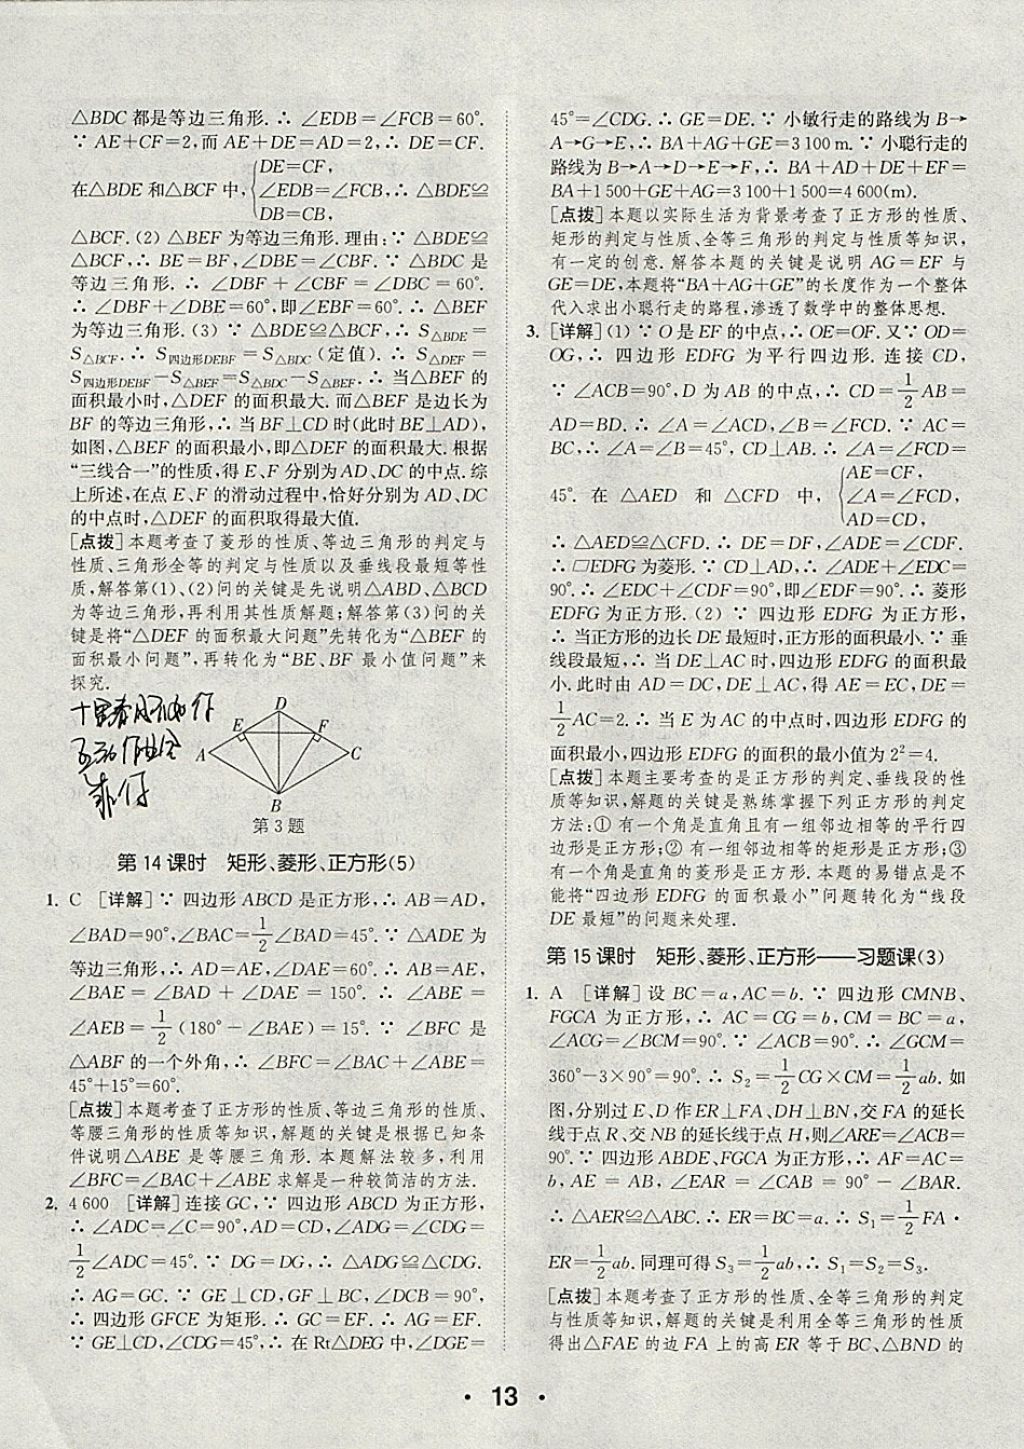 △BDC 都是等边三角形.∴ ∠EDB=∠FCB=60°.
∵ AE+CF=2,而 AE+DE=AD=2,∴ DE=CF.
在△BDE 和△BCF 中,{DE=CF,
∠EDB=∠FCB,∴ △BDE≌
DB=CB,
△BCF.(2) △BEF 为等边三角形.理由:∵ △BDE≌
△BCF,∴ BE=BF,∠DBE=∠CBF.∵ △BDC 是
等边三角形.∴ ∠DBF + ∠CBF = ∠DBC = 60°.
∴ ∠DBF+∠DBE=60°,即∠EBF=60°.∴ △BEF
为等边三角形.(3) ∵ △BDE≌△BCF,∴ S△BDE=
S△BCF.∴ S四边形DEBF=S△BDC(定值).∴ S△DEF=
S四边形DEBF-S△BEF=S△BDC-S△BEF.∴ 当△BEF 的
面积最小时,△DEF 的面积最大.而△BEF 是边长为
BF 的等边三角形,∴ 当 BF⊥CD 时(此时 BE⊥AD),
如图,△BEF 的面积最小,即△DEF 的面积最大.根据
“三线合一”的性质,得 E、F 分别为 AD、DC 的中点.综
上所述,在点 E、F 的滑动过程中,恰好分别为 AD、DC
的中点时,△DEF 的面积取得最大值.
[点拨]本题考查了菱形的性质、等边三角形的判定与
性质、三角形全等的判定与性质以及垂线段最短等性
质,解答第(1)、(2)问的关键是先说明△ABD、△BCD
为等边三角形,再利用其性质解题;解答第(3)问的关
键是将“△DEF 的面积最大问题”先转化为“△BEF 的
面积最小问题”,再转化为“BE、BF 最小值问题”来
探究.
D
E F
A C
B
第 3 题
第 14 课时 矩形、菱形、正方形(5)
1. C [详解]∵ 四边形 ABCD 是正方形,∴ AB=AD,
∠BAD=90°,∠BAC=1/2∠BAD=45°.∵ △ADE 为
等边三角形,∴ AD=AE,∠DAE=60°.∴ AB=AE,
∠BAE = ∠BAD + ∠DAE = 150°. ∴ ∠ABE =
∠AEB=1/2(180°-∠BAE)=15°.∵ ∠BFC 是
△ABF 的一个外角,∴ ∠BFC=∠BAC+∠ABE=
45°+15°=60°.
[点拨]本题考查了正方形的性质、等边三角形的性质、
等腰三角形的性质等知识,解题的关键是根据已知条
件说明△ABE 是等腰三角形.本题解法较多,利用
∠BFC=∠BAC+∠ABE 求解是一种较简洁的方法.
2. 4 600 [详解]连接 GC,∵ 四边形 ABCD 为正方形,
∴ ∠ADC=∠C=90°,AD=CD,∠ADG=∠CDG=
1/2∠ADC=45°.∵ DG=DG,∴ △ADG≌△CDG.
∴ AG=GC.∵ GE⊥CD,GF⊥BC,∠DCB=90°,
∴ 四边形 GFCE 为矩形.∴ GC=EF.∴ AG=EF.
∵ GE⊥CD,∠CDG=45°,∴ 在 Rt△DEG 中,∠DGE=
45°=∠CDG.∴ GE=DE.∵ 小敏行走的路线为 B→
A→G→E,∴ BA+AG+GE=3 100 m.∵ 小聪行走的
路线为 B→A→D→E→F,∴ BA+AD+DE+EF=
BA+1 500+GE+AG=3 100+1 500=4 600(m).
[点拨]本题以实际生活为背景考查了正方形的性质、
矩形的判定与性质、全等三角形的判定与性质等知识,
有一定的创意.解答本题的关键是说明 AG=EF 与
GE=DE,本题将“BA+AG+GE”的长度作为一个整体
代入求出小聪行走的路程,渗透了数学中的整体思想.
3. [详解](1) ∵ O 是 EF 的中点,∴ OE=OF.又∵ OD=
OG,∴ 四边形 EDFG 为平行四边形.连接 CD,
∵ ∠ACB=90°,D 为 AB 的中点,∴ CD=1/2AB=
AD=BD.∴ ∠A=∠ACD,∠B=∠FCD.∵ AC=
BC,∴ ∠A=∠B=45°,CD⊥AB.∴ ∠A=∠FCD=
45°. 在 △AED 和 △CFD 中,{AE=CF,
∠A=∠FCD,
AD=CD,
∴ △AED≌△CFD.∴ DE=DF,∠ADE=∠CDF.
∴ □EDFG 为菱形.∵ CD⊥AD,∴ ∠ADE+∠EDC=
90°.∴ ∠EDC+∠CDF=90°,即∠EDF=90°.∴ 菱形
EDFG 为正方形.(2) ∵ 四边形 EDFG 为正方形,
∴ 当正方形的边长 DE 最短时,正方形的面积最小.∵ 垂
线段最短,∴ 当 DE⊥AC 时,四边形 EDFG 的面积最
小.此时由 AD=DC,DE⊥AC,得 AE=EC,DE=
1/2AC=2.∴ 当 E 为 AC 的中点时,四边形 EDFG 的
面积最小,四边形 EDFG 的面积的最小值为 2²=4.
[点拨]本题主要考查的是正方形的判定、垂线段的性
质等知识,解题的关键是熟练掌握下列正方形的判定
方法:① 有一个角是直角且有一组邻边相等的平行四
边形是正方形;② 有一组邻边相等的矩形是正方形;③
有一个角是直角的菱形是正方形.本题的易错点是不
能将“四边形 EDFG 的面积最小”问题转化为“线段
DE 最短”的问题来处理.
第 15 课时 矩形、菱形、正方形——习题课(3)
1. A [详解]设 BC=a,AC=b.∵ 四边形 CMNB、
FGCA 为正方形,∴ AC=CG=b,CM=BC=a,
∠ACG=∠BCM=90°.∵ ∠ACB=90°,∴ ∠GCM=
360°-3×90°=90°.∴ S₂=1/2CG×CM=1/2ab.如
图,分别过 E、D 作 ER⊥FA、DH⊥BN,交 FA 的延长
线于点 R、交 NB 的延长线于点 H,则∠ARE=∠ACB=
90°.∵ 四边形 ABDE、FGCA 为正方形,∴ AF=AC=
b,AE = AB, ∠EAR = ∠CAB = 90° - ∠BAR.
∴ △AER≌△ABC.∴ ER=BC=a.∴ S₁=1/2FA·
ER=1/2ab.同理可得 S₃=1/2ab,∴ S₁=S₂=S₃.
[点拨]本题考查了正方形的性质、全等三角形的判定
与性质等知识,解题的关键是利用全等三角形的性质
得出△FAE 的边 FA 上的高 ER 等于 BC、△BND 的
· 13 ·